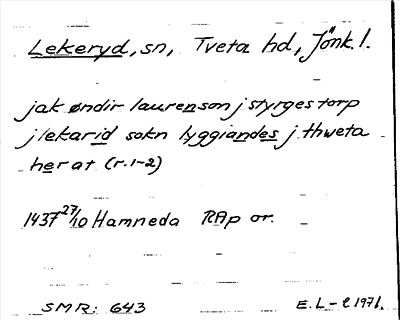 Lekeryd, sn, Tveta hd, Jönk. l.
jak øndir laurenson j styrges torp
j lekarid sokn lyggiandes j thweta
herat (r. 1-2)
1437 27/10 Hamneda RAp or.
SMR: 643
E. L-l 1971.